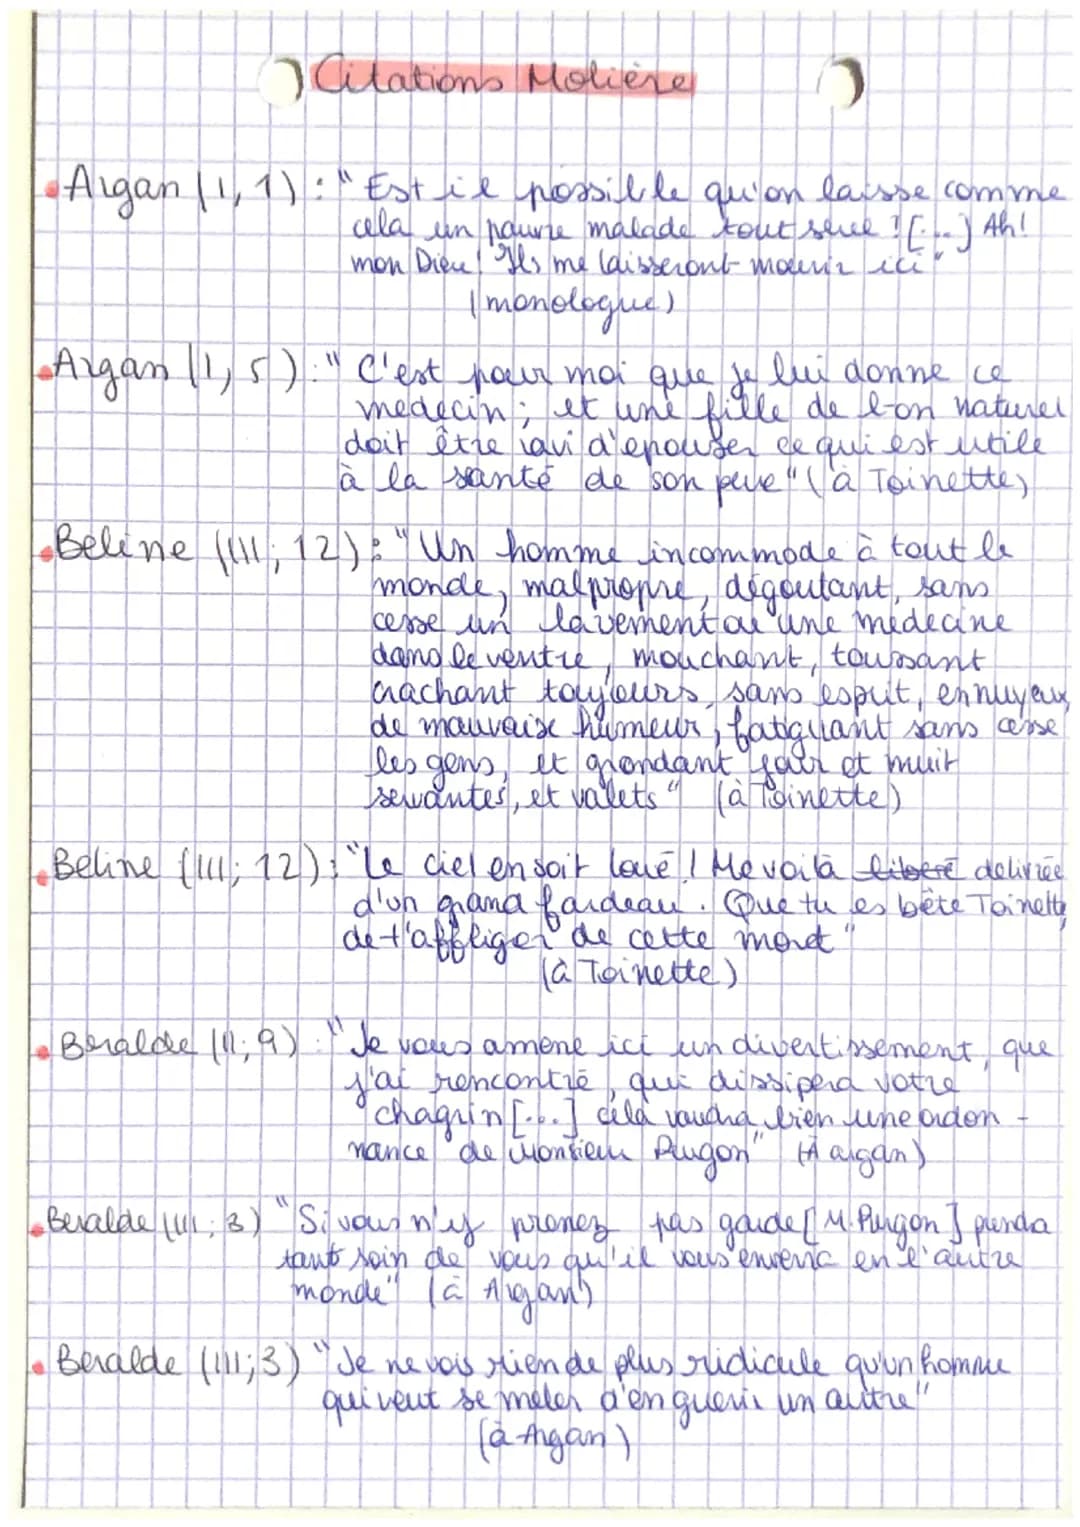 Citations Molière
• Argan (I, 1) : "Est il possible qu'on laisse comme
cela un pauvre malade tout seul ! [...] Ah!
mon Dieu! Ils me laisseront mourir ici"
(monologue)
• Argan (I, 5) : "C'est pour moi que je lui donne ce
medecin ; et une fille de bon naturel
doit être ravi d'epouser ce qui est utile
à la santé de son père" (à Toinette)
• Beline (III; 12) : "Un homme incommode à tout le
monde, malpropre, dégoutant, sans
cesse un lavement ou une medecine
dans le ventre, mouchant, toussant
crachant toujours, sans esprit, ennuyeux
de mauvaise humeur, fatiguant sans cesse
les gens, et grondant jour et nuit
servantes, et valets" (à Toinette)
• Beline (III; 12) : "Le ciel en soit loué ! Me voilà libéré delivrée
d'un grand fardeau. Que tu es bête Toinette,
de t'affliger de cette mort"
(à Toinette)
• Beralde (II; 9) : "Je vous amène ici un divertissement, que
j'ai rencontré, qui dissipera votre
chagrin [...] cela vaudra bien une ordon-
nance de Monsieur Purgon" (À argan)
• Beralde (III; 3) "Si vous n'y prenez pas garde [M. Purgon] prendra
tant soin de vous qu'il vous enverra en l'autre
monde" (à Argan)
• Beralde (III; 3) "Je ne vois rien de plus ridicule qu'un homme
qui veut se mêler d'en guerir un autre"
(à Argan)